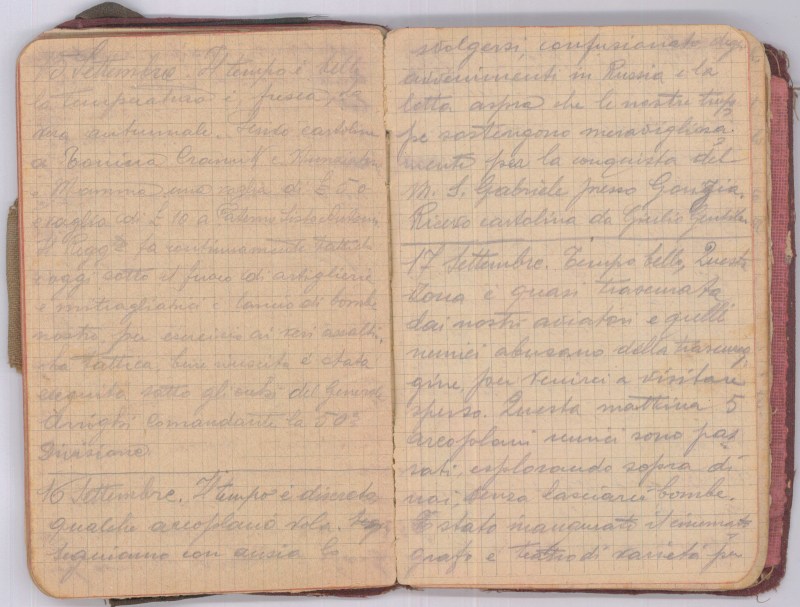 15 Settembre. Il tempo è bello
la temperatura è fresca,
autunnale. Spedo cartoline
a
e Mamma una vaglia di £ 50
e vaglia di £ 10 a Paterno
Il Regg.to fa continuamente tattica
e oggi sotto il fuoco di artiglierie
e mitragliatrici e lancio di bombe
nostro per esercizio ai veri assalti,
tattica bene riuscita è stata
eseguita sotto gli occhi del Generale
Arrighi Comandante la 50a
Divisione
16 Settembre. Il tempo è discreto
qualche areoplano vola.
Seguiamo con ansia lo
svolgersi confusionato degli
avvenimenti in Russia e la
lotta aspra che le nostre trup-
pe sostengono meravigliosa-
mente per la conquista del
M. S. Gabriele presso Gorizia.
Ricevo cartolina da Giulio Gentile
17 Settembre. Tempo bello, Questa
zona è quasi trascurata
dai nostri aviatori e quelli
nemici abusano della trascurag-
gine, per venirci a visitare
spesso. Questa mattina 5
areoplani nemici sono pas-
sati, esplorando sopra di
noi, senza lasciarci bombe.
È stato inaugurato il cinemato-
grafo e teatro di varietà per